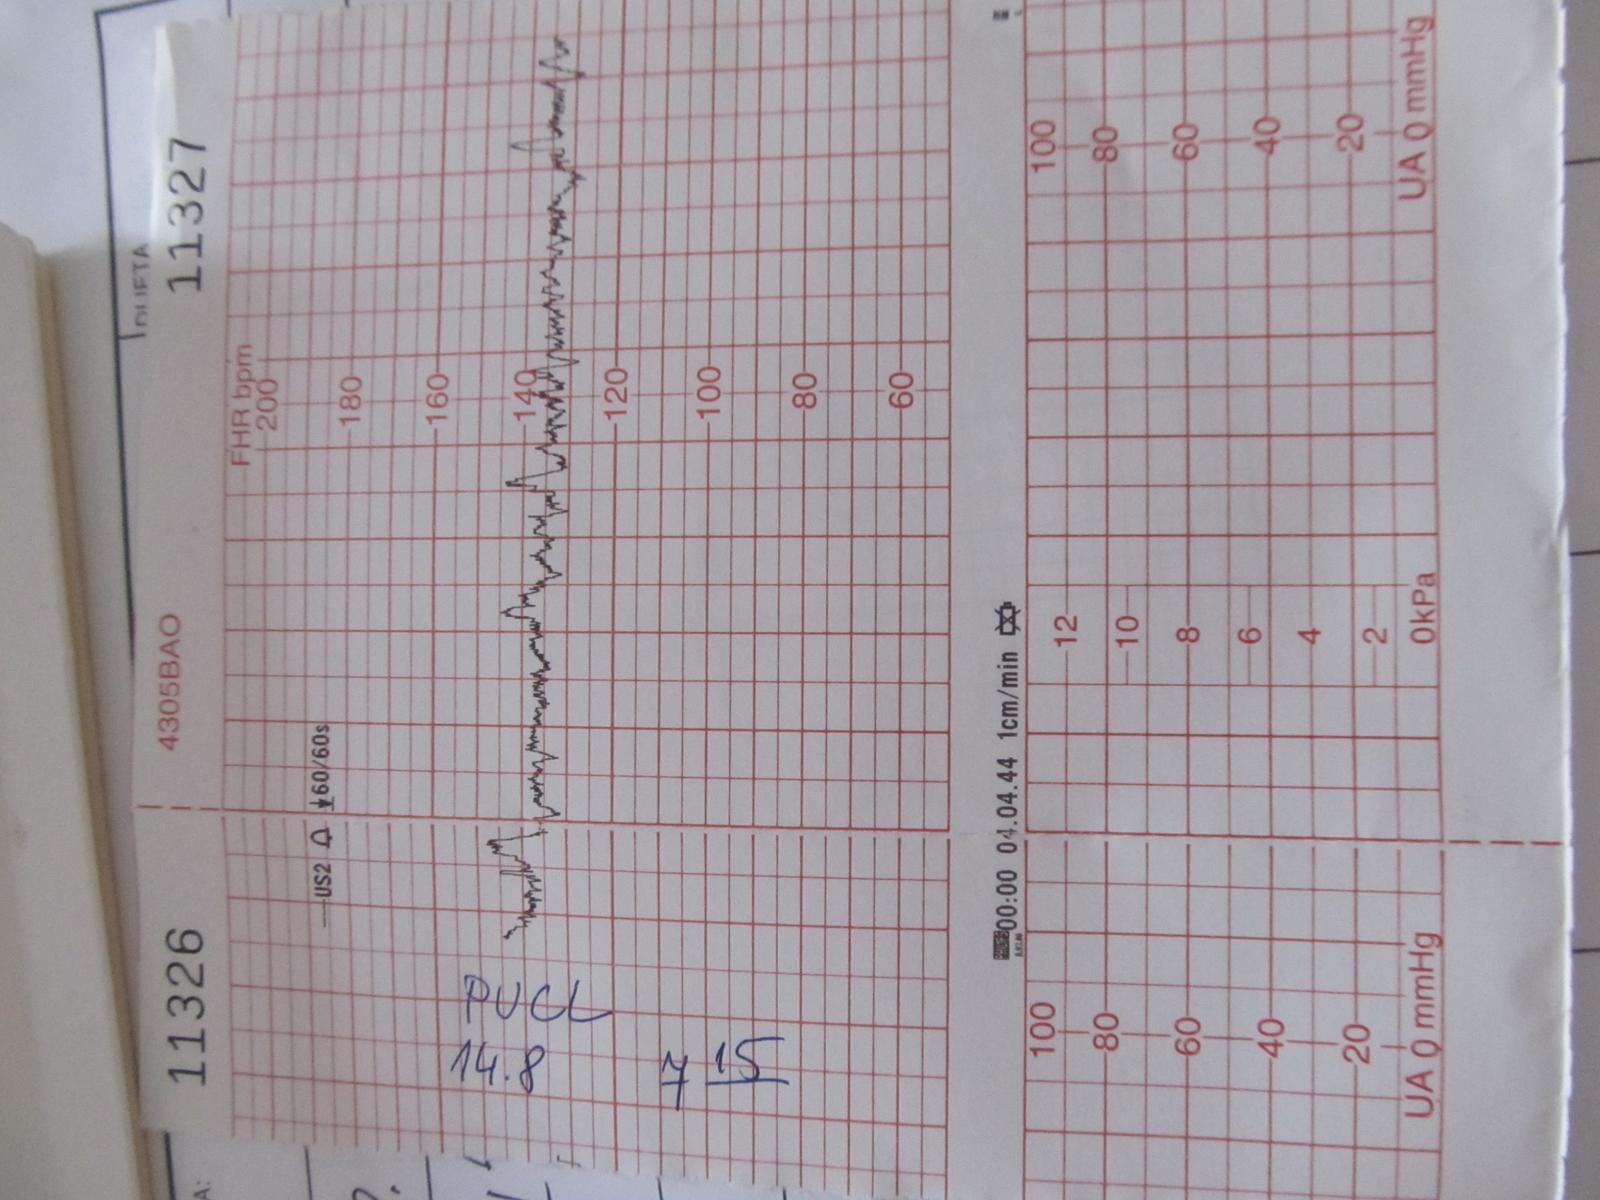 11326
11327
4305BAO
FHR bpm
200
180
160
140
120
100
80
60
US2
60/60s
PUCL
14.8
7 15
00:00 04.04.44 1cm/min
100
80
60
40
20
UA 0 mmHg
12
10
8
6
4
2
0kPa
100
80
60
40
20
UA 0 mmHg
A: